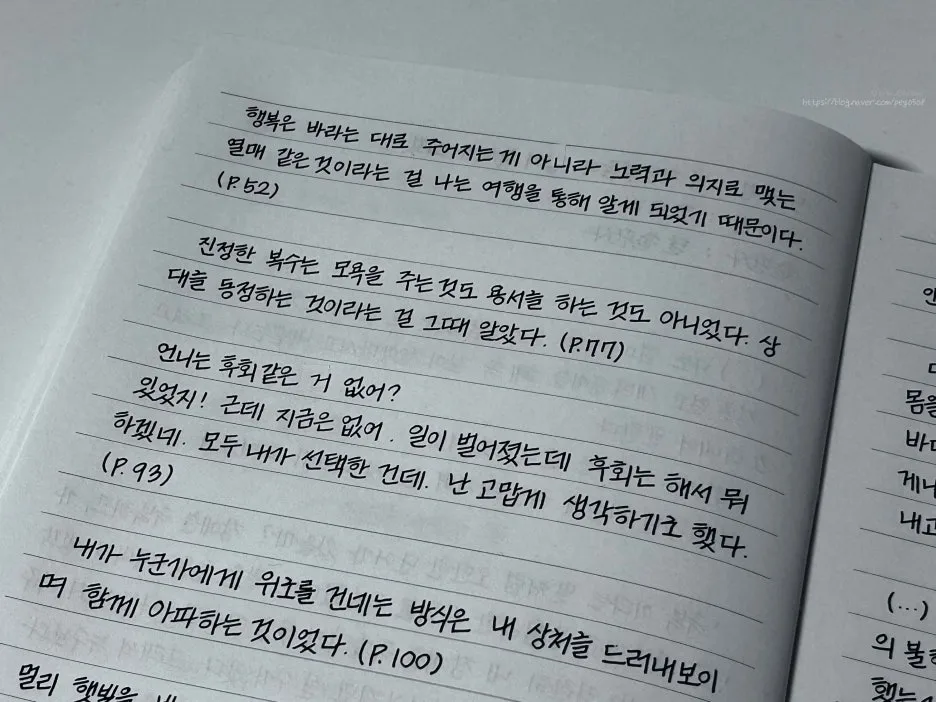 행복은 바라는 대로 주어지는게 아니라 노력과 의지로 맺는
열매 같은것이라는 걸 나는 여행을 통해 알게 되었기 때문이다.
(P.52)
진정한 복수는 모욕을 주는것도 용서를 하는 것도 아니었다. 상
대를 동정하는 것이라는 걸 그때 알았다. (P.77)
언니는 후회같은 거 없어?
있었지! 근데 지금은 없어. 일이 벌어졌는데 후회는 해서 뭐
하겠네. 모두 내가 선택한 건데. 난 고맙게 생각하기로 했다.
(P.93)
내가 누군가에게 위로를 건네는 방식은 내 상처를 드러내보이
며 함께 아파하는 것이었다. (P.100)
멀리 햇빛을
몸을
바다
게나
내고
(...)
의 불
했는